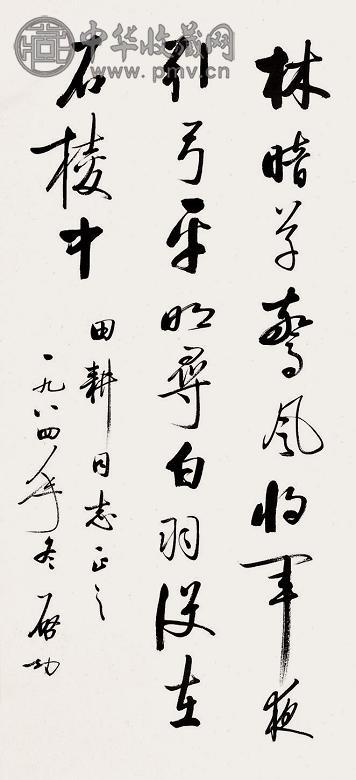 林暗草驚風将軍夜
引弓平明尋白羽没在
石棱中
田耕同志正之
一九八四年冬 启功
中华收藏网
www.pmv.cn